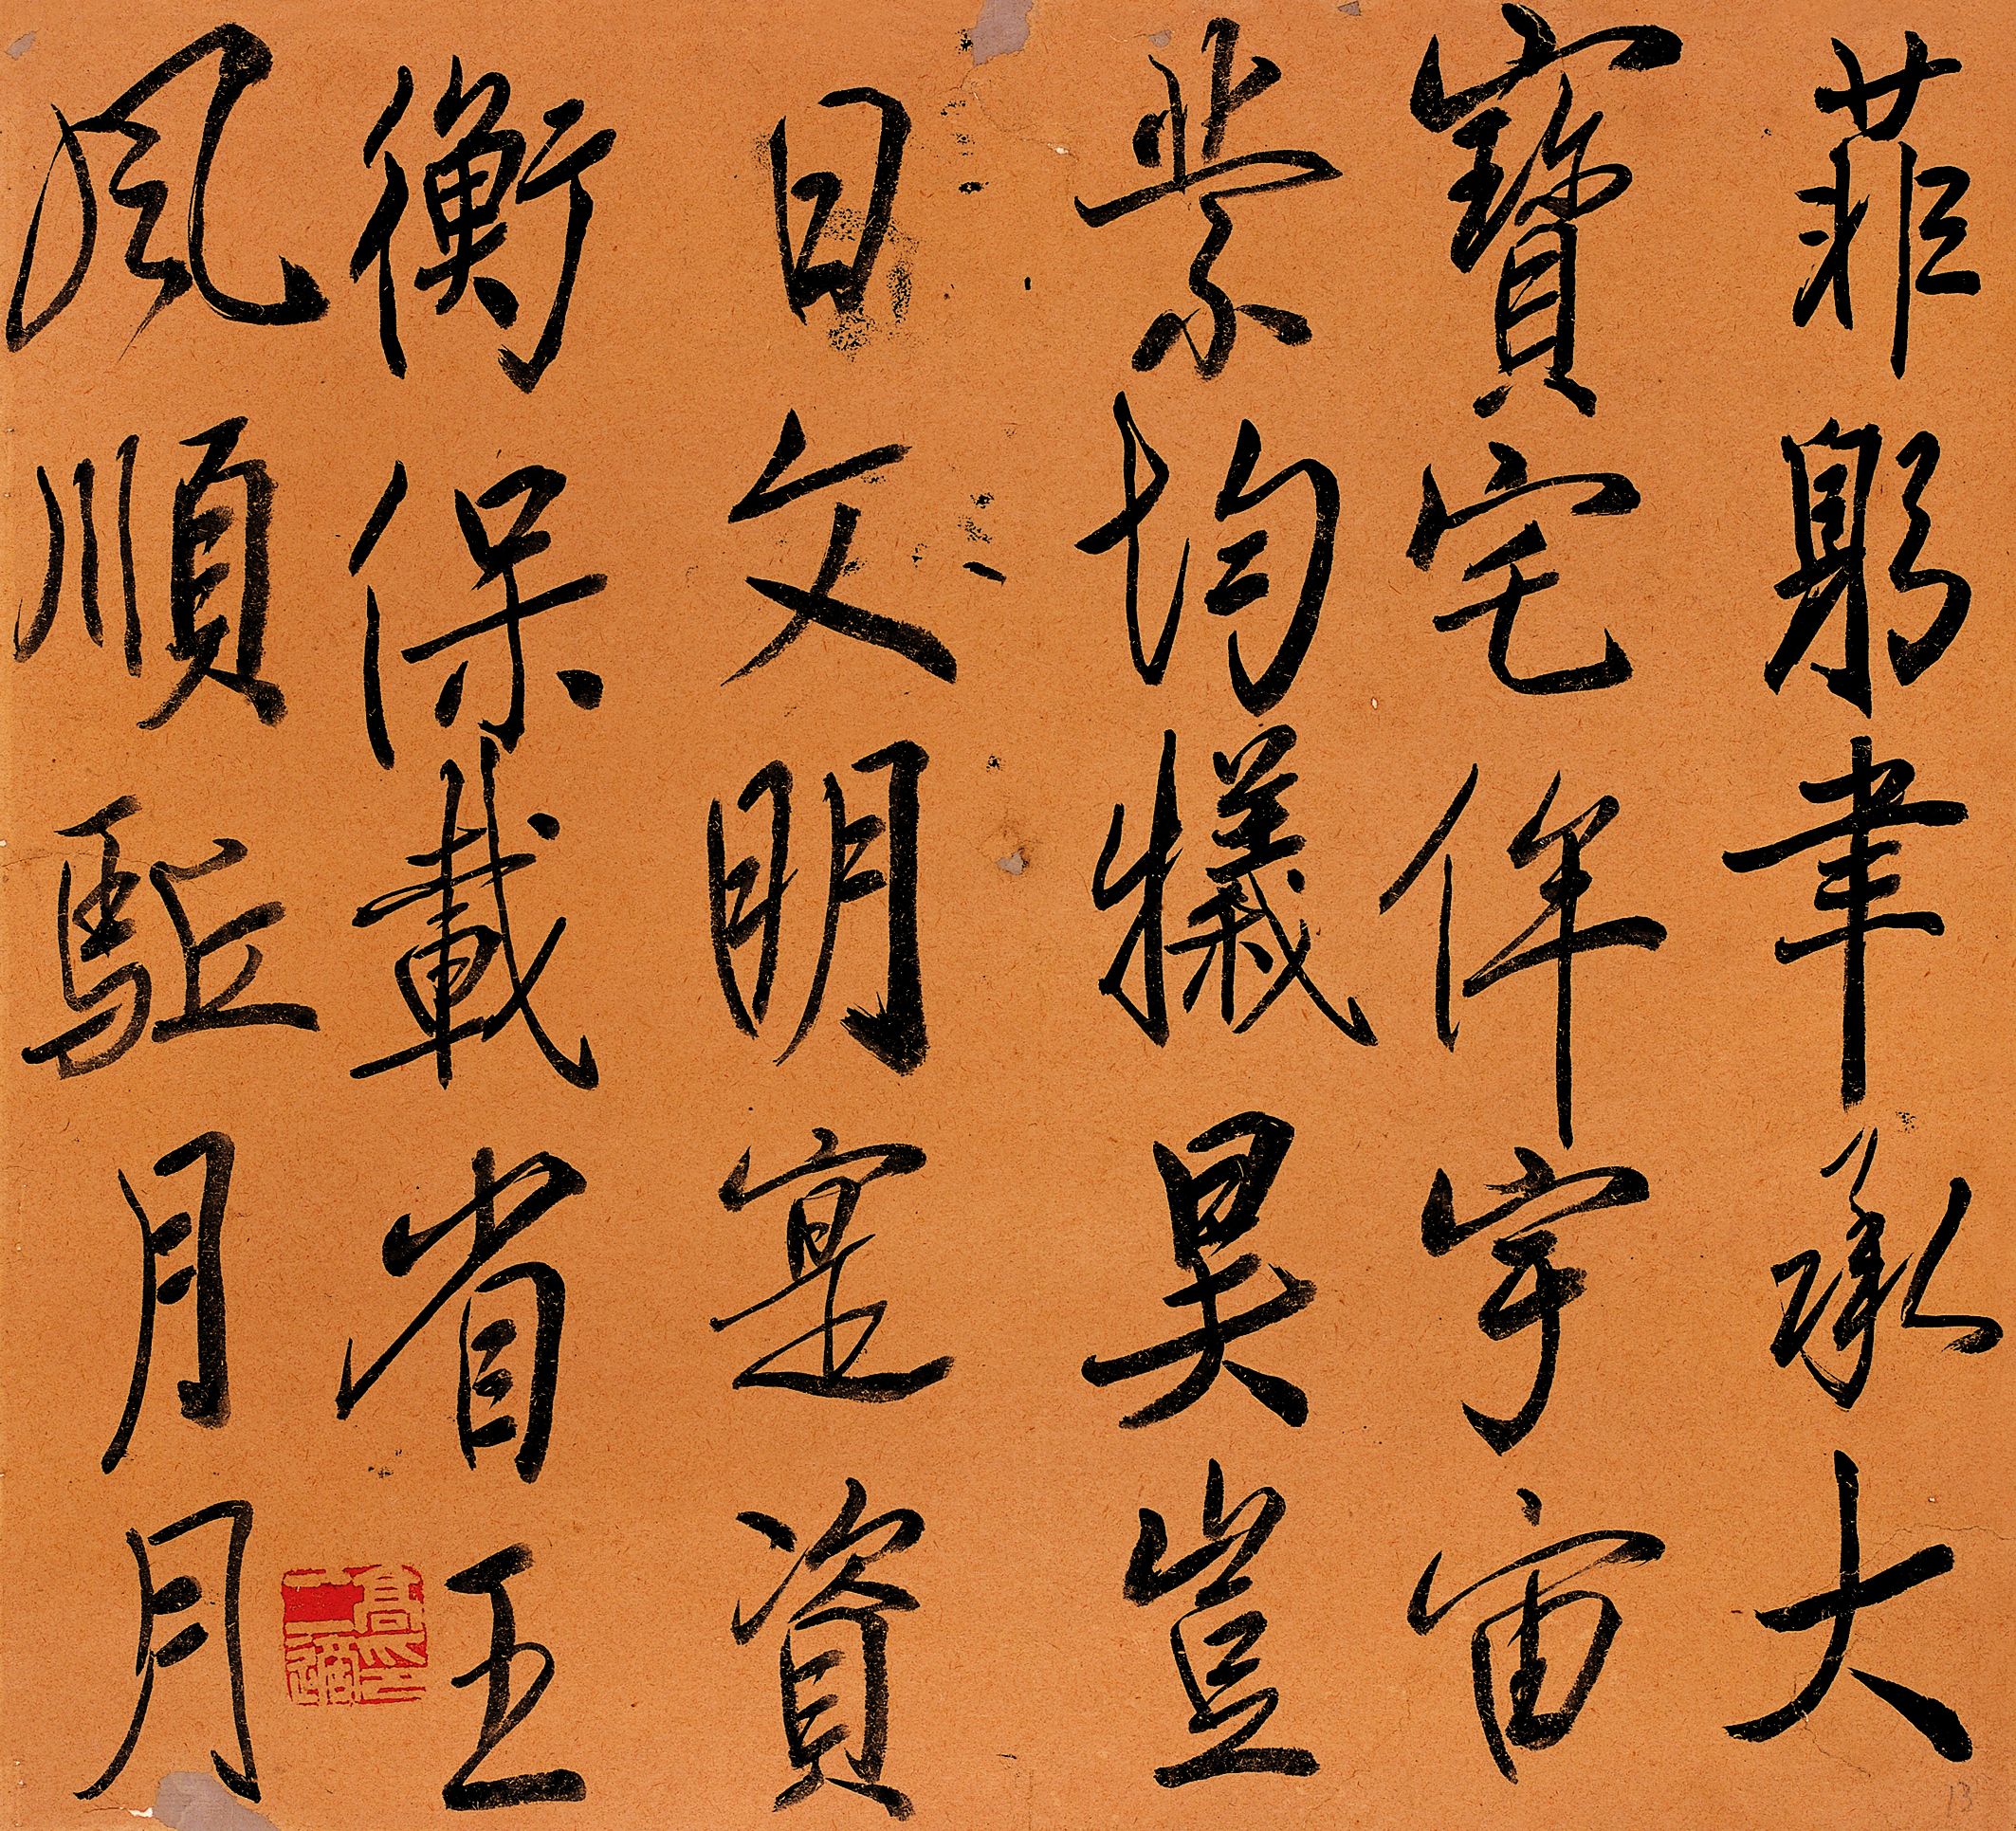 菲躬聿承大
寶宅侔宇宙
業均犧昊豈
曰文明寔資
衡保載省王
風順駈月月